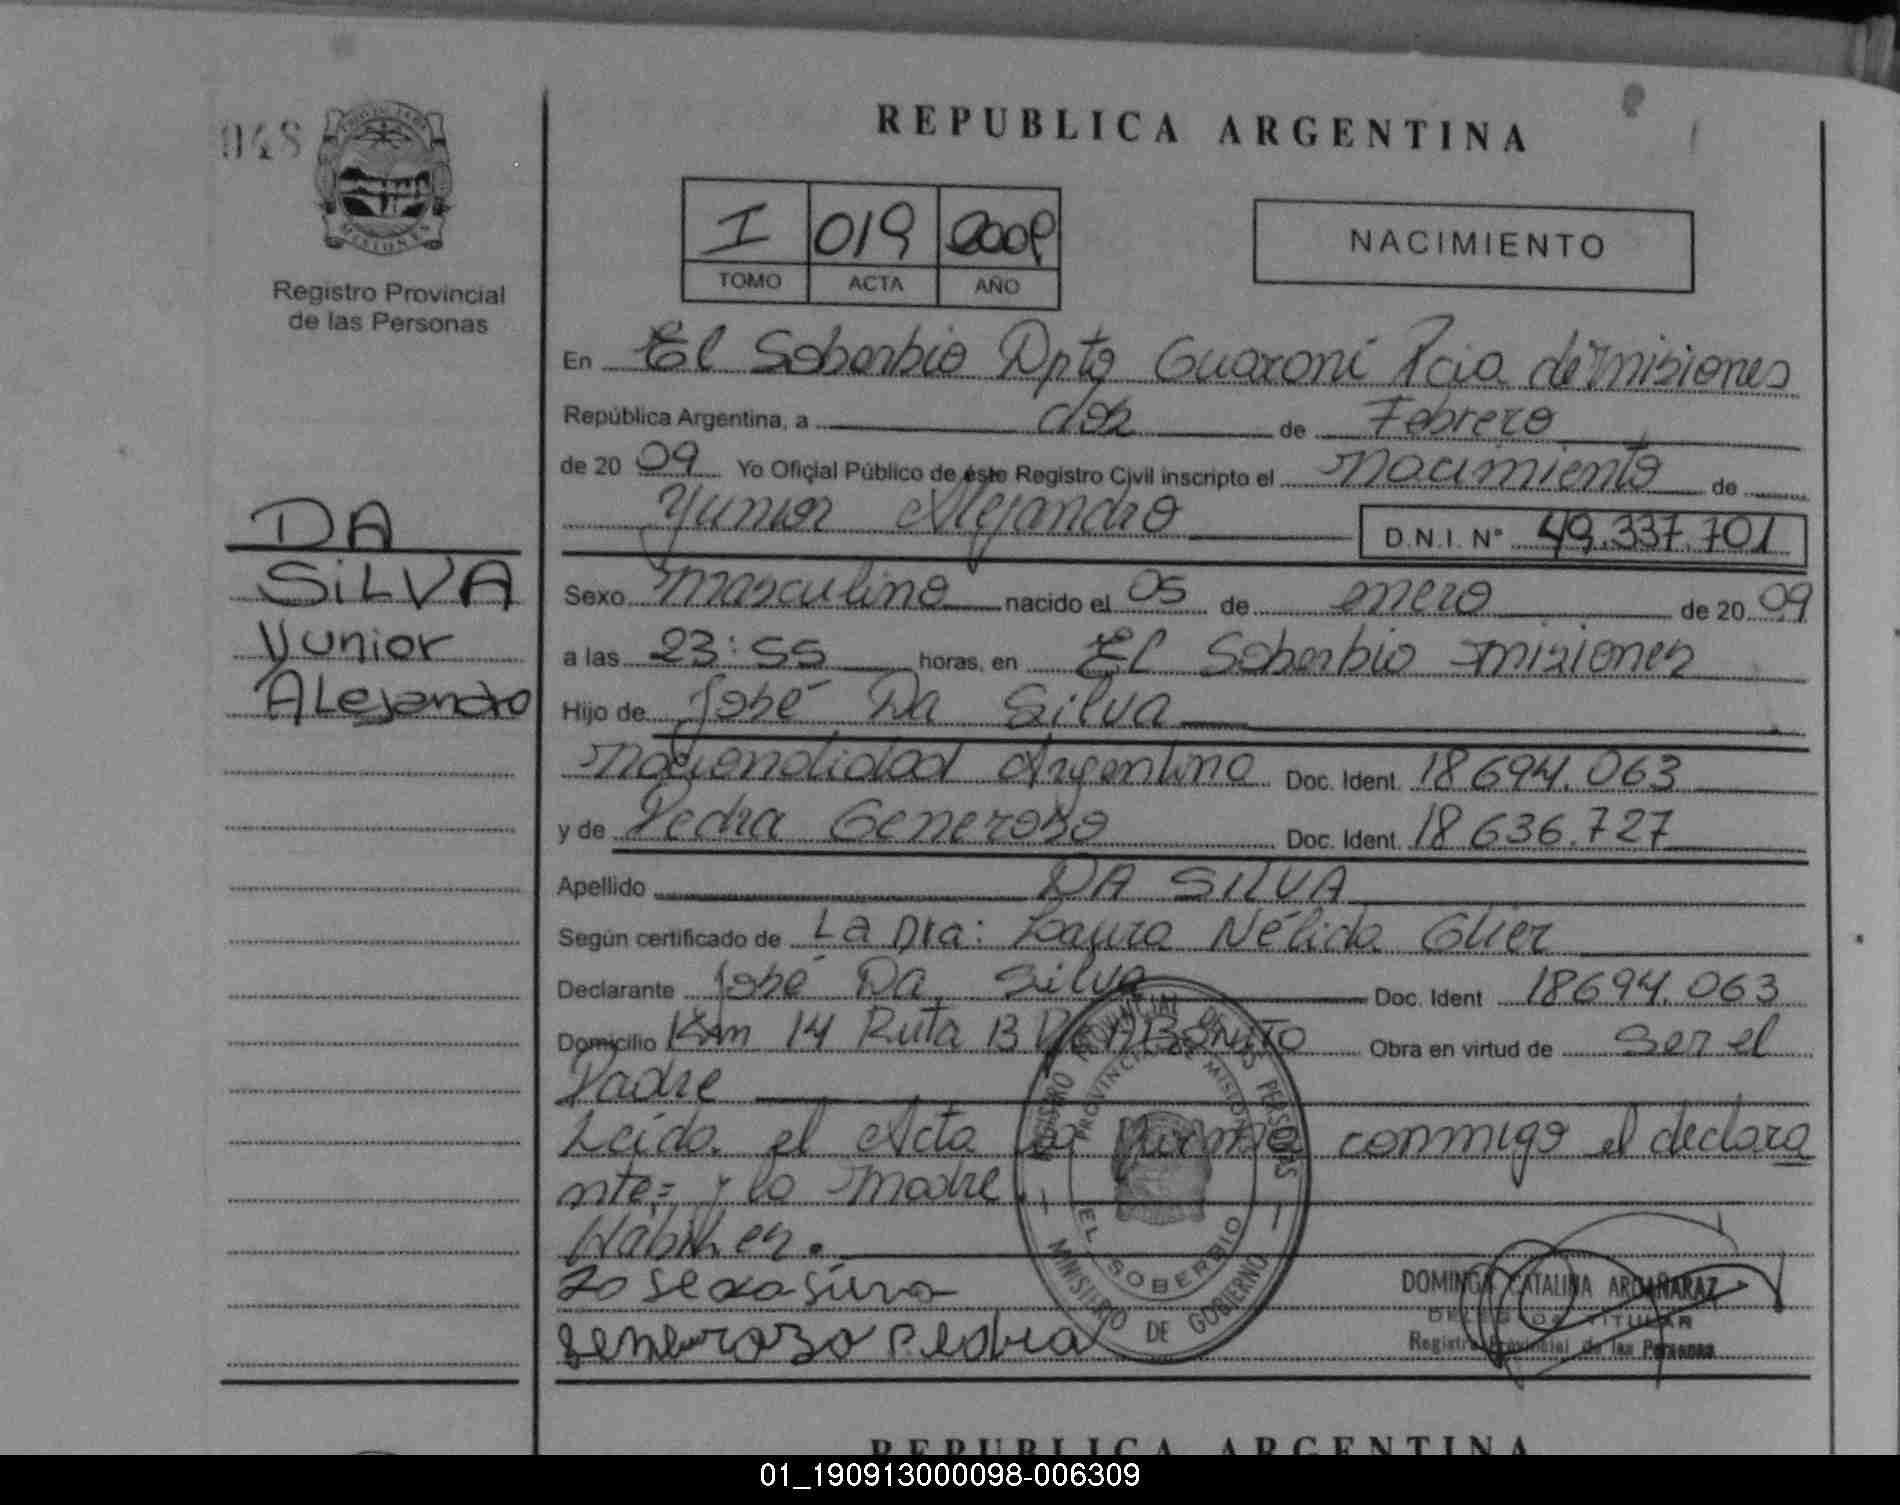 048
PROVINCIA DE
MISIONES
Registro Provincial
de las Personas
DA
SILVA
Yunior
ALejandro
REPUBLICA ARGENTINA
I 019 2009
TOMO ACTA AÑO
NACIMIENTO
En El Soberbio Dpto Guaraní Pcia de misiones
República Argentina, a dos de Febrero
de 20 09 Yo Oficial Público de éste Registro Civil inscripto el nacimiento de
Yunior Alejandro D.N.I. N° 49.337.701
Sexo masculino nacido el 05 de enero de 20 09
a las 23:55 horas, en El Soberbio misiones
Hijo de José Da Silva
nacionalidad Argentina Doc. Ident. 18694.063
y de Pedra Generoso Doc. Ident. 18636.727
Apellido DA SILVA
Según certificado de La Dra: Laura Nélida Glier
Declarante José Da Silva Doc. Ident 18694.063
Domicilio Km 14 Ruta 13 BONITO Obra en virtud de ser el
Padre
Leída el Acta la firman conmigo el declara
nte= y la madre
REGISTRO PROVINCIAL DE LAS PERSONAS
PROVINCIA DE MISIONES
EL SOBERBIO
MINISTERIO DE GOBIERNO
generozo Pedra
DOMINGA CATALINA ARGAÑARAZ
DELEGADA TITULAR
Registro Provincial de las Personas
REPUBLICA ARGENTINA
01_190913000098-006309